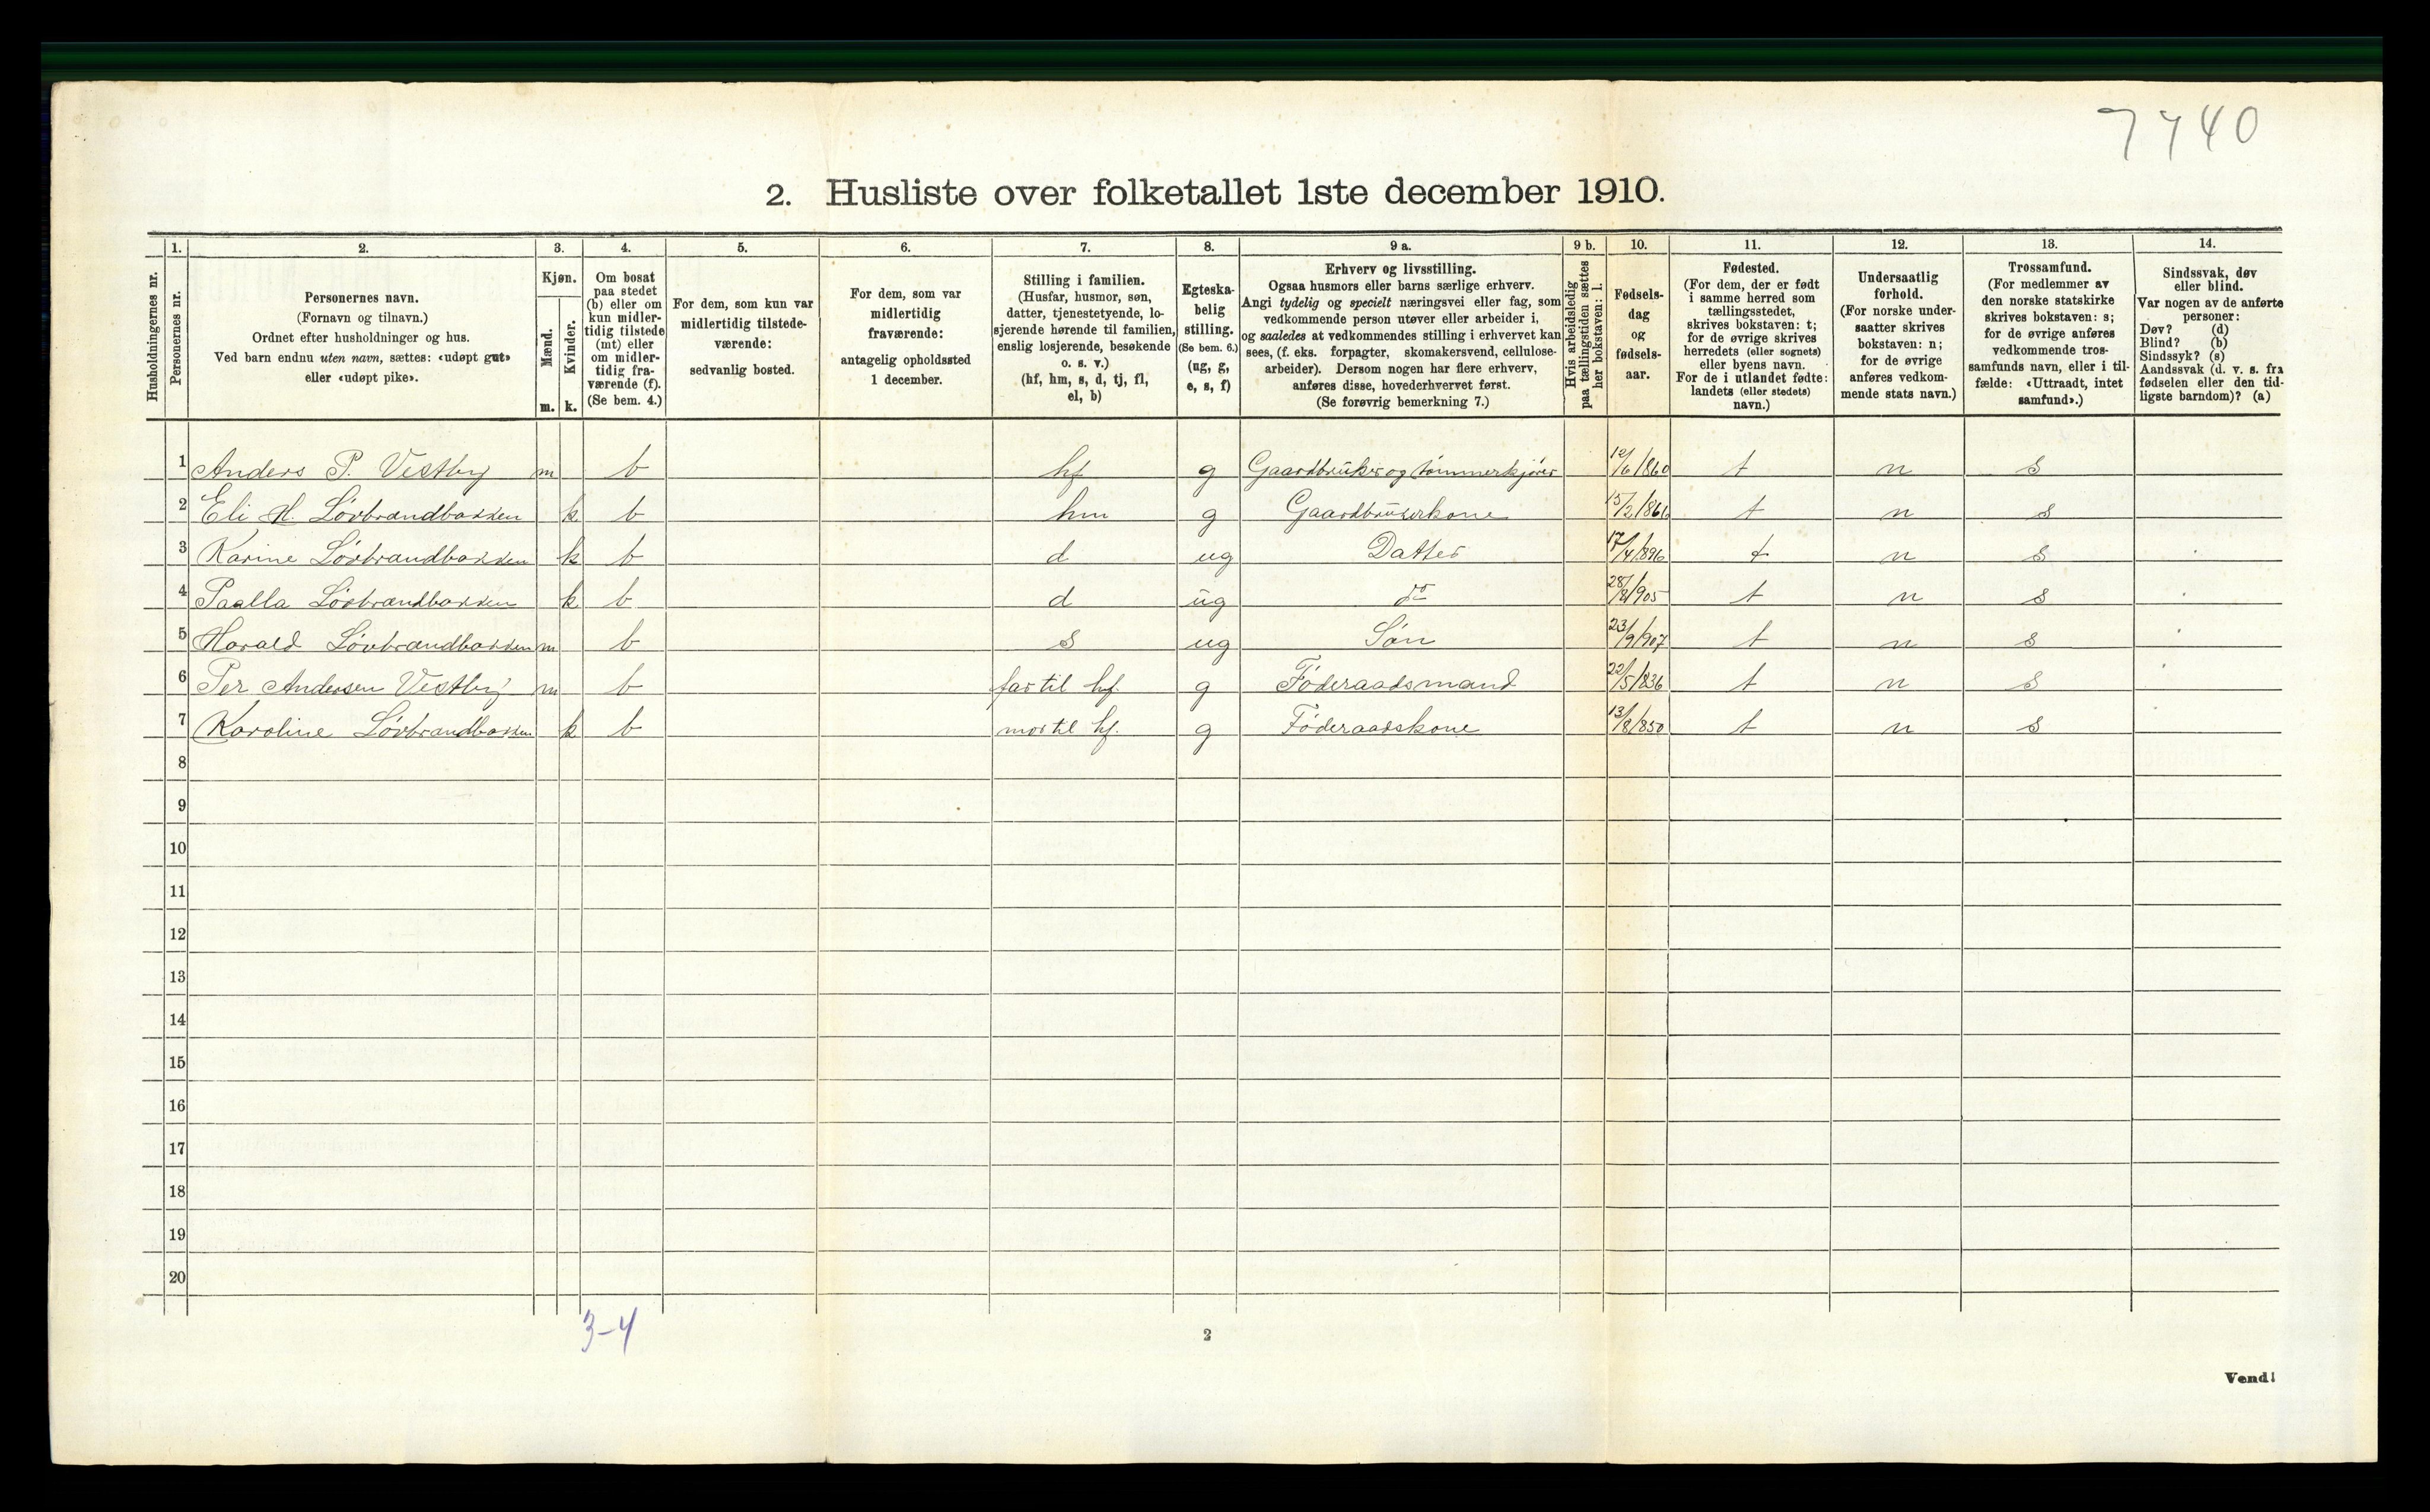 7740
2. Husliste over folketallet 1ste december 1910.
Husholdningernes nr.
1.
Personernes nr.
2.
Personernes navn.
(Fornavn og tilnavn.)
Ordnet efter husholdninger og hus.
Ved barn endnu uten navn, sættes: «udøpt gut»
eller «udøpt pike».
3.
Kjøn.
Mænd.
Kvinder.
m. k.
4.
Om bosat
paa stedet
(b) eller om
kun midler-
tidig tilstede
(mt) eller
om midler-
tidig fra-
værende (f).
(Se bem. 4.)
5.
For dem, som kun var
midlertidig tilstede-
værende:
sedvanlig bosted.
6.
For dem, som var
midlertidig
fraværende:
antagelig opholdssted
1 december.
7.
Stilling i familien.
(Husfar, husmor, søn,
datter, tjenestetyende, lo-
sjerende hørende til familien,
enslig losjerende, besøkende
o. s. v.)
(hf, hm, s, d, tj, fl,
el, b)
8.
Egteska-
belig
stilling.
(Se bem. 6.)
(ug, g,
e, s, f)
9 a.
Erhverv og livsstilling.
Ogsaa husmors eller barns særlige erhverv.
Angi tydelig og specielt næringsvei eller fag, som
vedkommende person utøver eller arbeider i,
og saaledes at vedkommendes stilling i erhvervet kan
sees, (f. eks. forpagter, skomakersvend, cellulose-
arbeider). Dersom nogen har flere erhverv,
anføres disse, hovederhvervet først.
(Se forøvrig bemerkning 7.)
9 b.
Hvis arbeidsledig
paa tællingstiden sættes
her bokstaven: l.
10.
Fødsels-
dag
og
fødsels-
aar.
11.
Fødested.
(For dem, der er født
i samme herred som
tællingsstedet,
skrives bokstaven: t;
for de øvrige skrives
herredets (eller sognets)
eller byens navn.
For de i utlandet fødte:
landets (eller stedets)
navn.)
12.
Undersaatlig
forhold.
(For norske under-
saatter skrives
bokstaven: n;
for de øvrige
anføres vedkom-
mende stats navn.)
13.
Trossamfund.
(For medlemmer av
den norske statskirke
skrives bokstaven: s;
for de øvrige anføres
vedkommende tros-
samfunds navn, eller i til-
fælde: «Uttraadt, intet
samfund».)
14.
Sindssvak, døv
eller blind.
Var nogen av de anførte
personer:
Døv? (d)
Blind? (b)
Sindssyk? (s)
Aandssvak (d. v. s. fra
fødselen eller den tid-
ligste barndom)? (a)
1 Anders P. Vestby m b hf g Gaardbruker og tømmerkjører 12/6/860 t n s
2 Eli H. Lövbrandbakken k b hm g Gaardbrukerkone 15/2/866 t n s
3 Karine Lövbrandbakken k b d ug Datter 17/4/896 t n s
4 Paalla Lövbrandbakken k b d ug do 28/8/905 t n s
5 Harald Lövbrandbakken m b s ug Sön 23/9/907 t n s
6 Per Andersen Vestby m b far til hf. g Föderaadsmand 22/5/836 t n s
7 Karoline Lövbrandbakken k b mor til hf. g Föderaadskone 13/8/850 t n s
8
9
10
11
12
13
14
15
16
17
18
19
20
3-4
2
Vend!